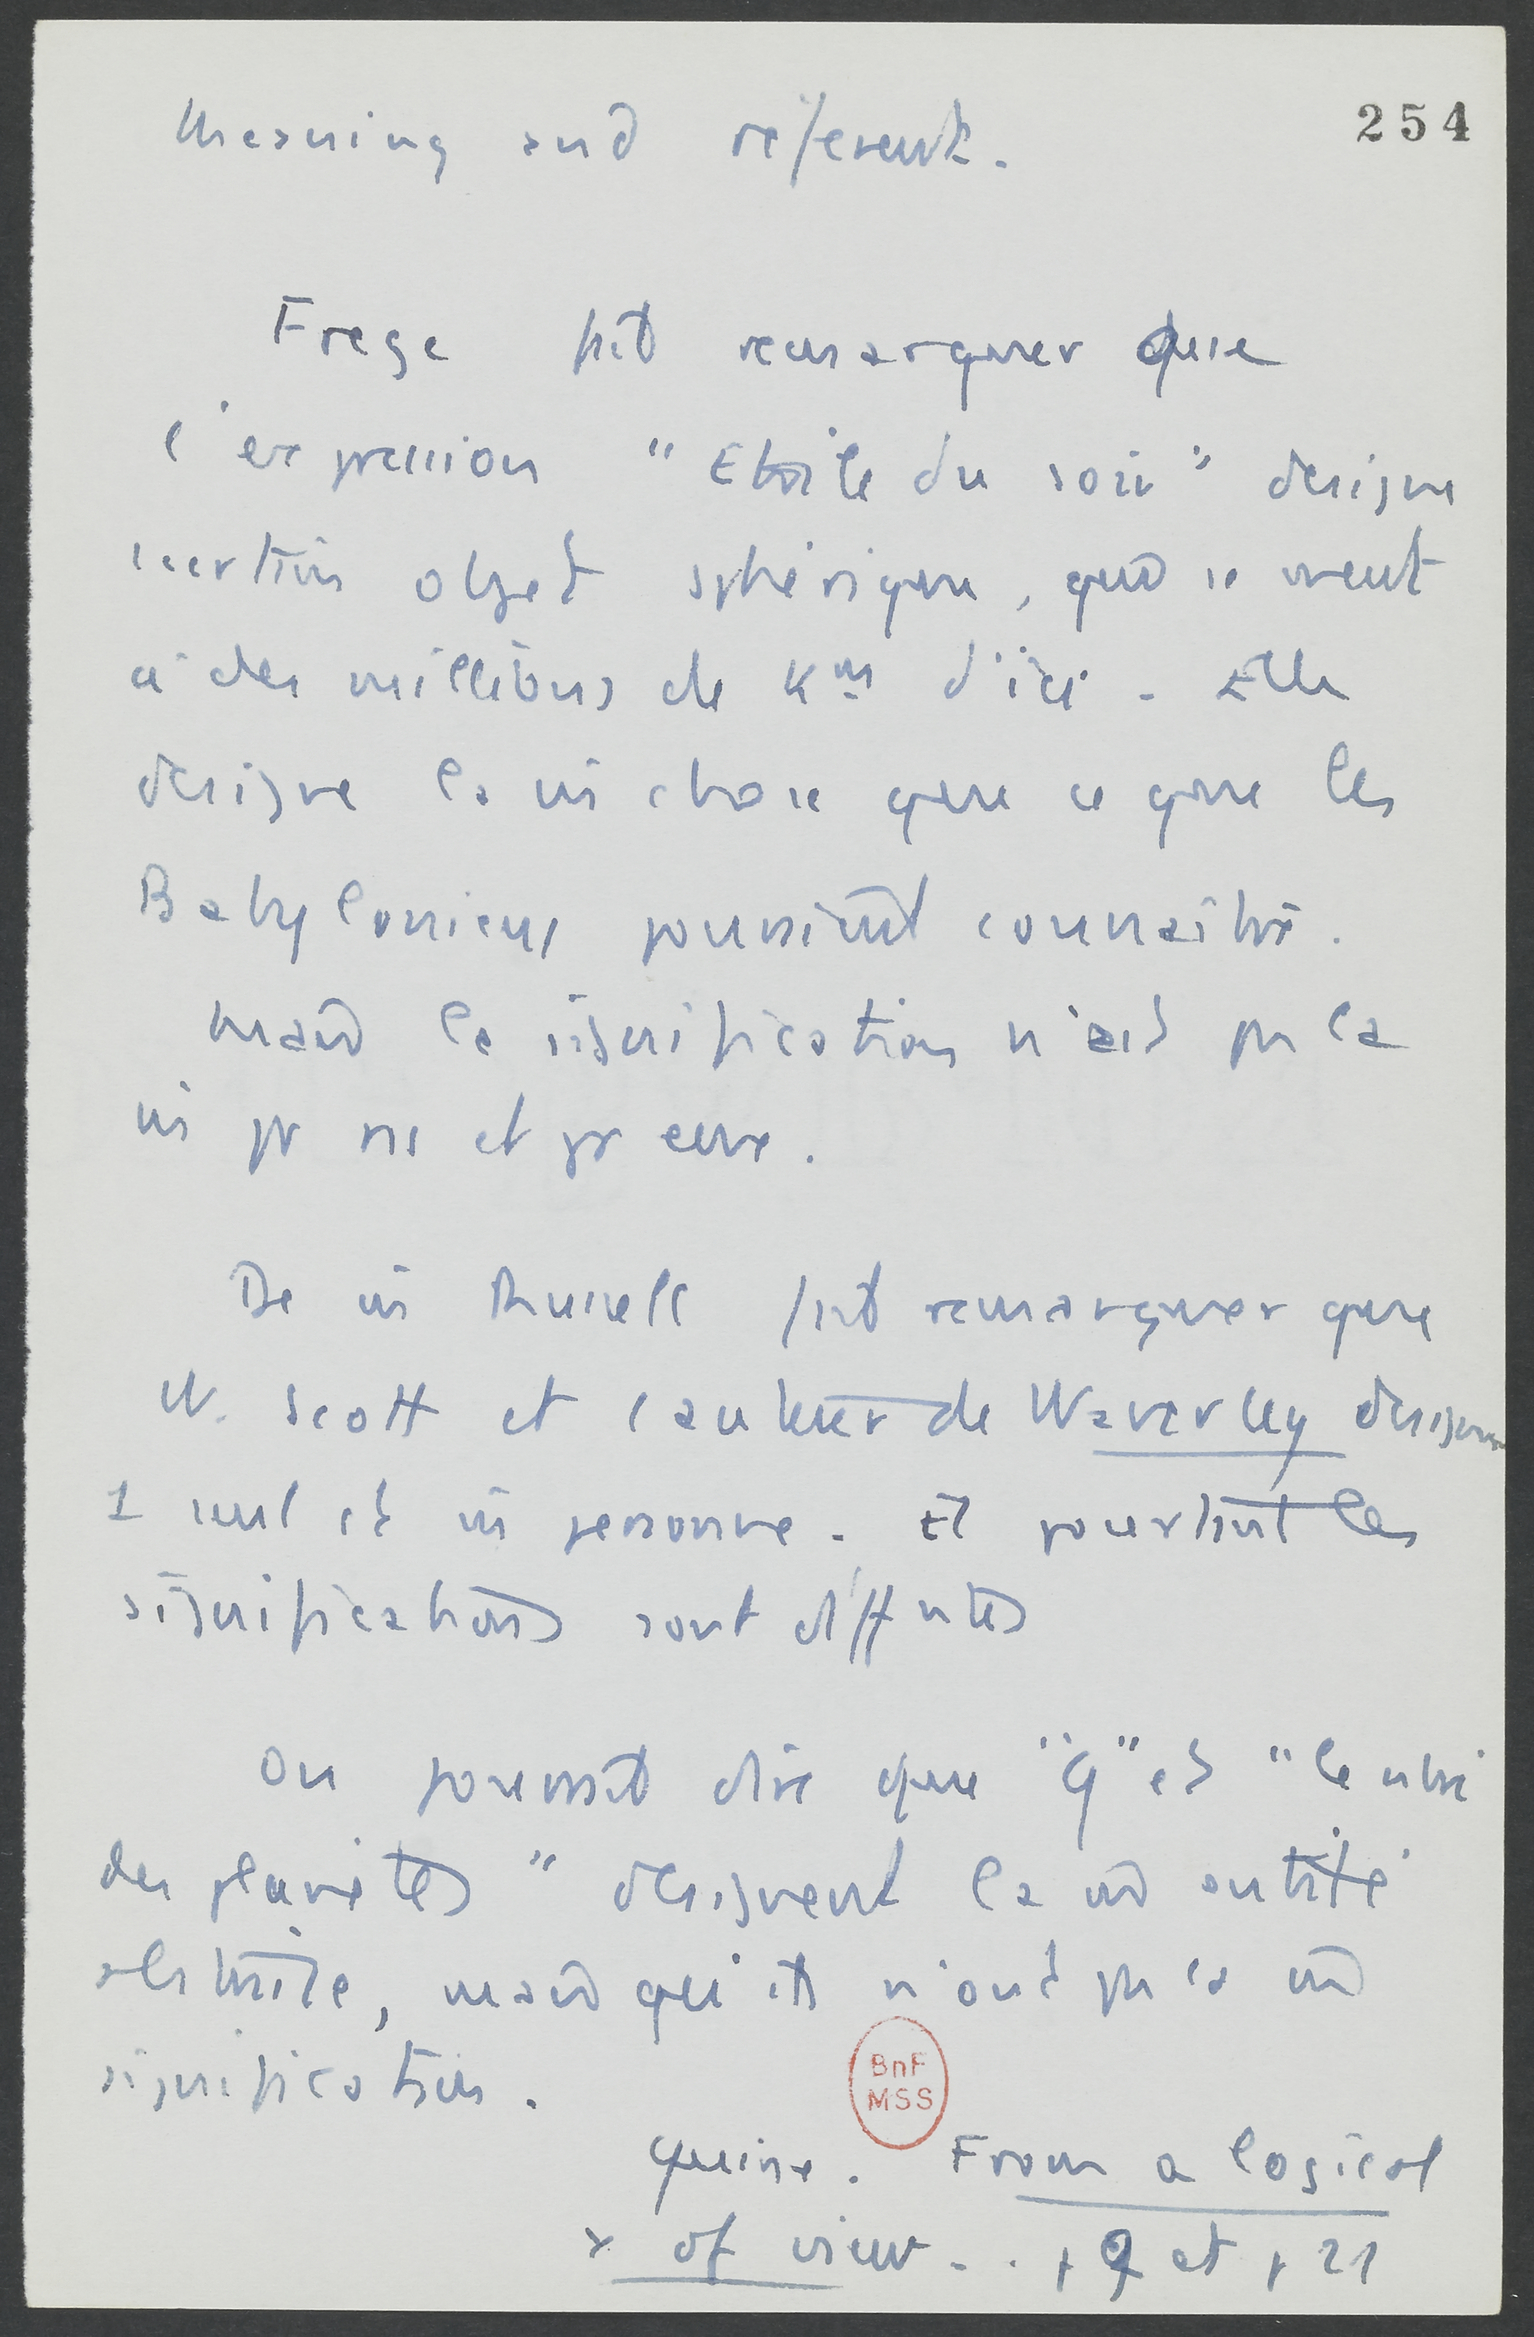 Meaning and referent.
254
Frege fait remarquer que
l'expression "Etoile du soir" designe
1 certain objet spherique, qui se meut
à des millions de Km d'ici. Elle
designe la m̂ chose que ce que les
Babyloniens pouvaient connaître.
Mais la signification n'est pas la
m̂ pr ns et pr eux.
De m̂ Russell fait remarquer que
W. Scott et l'auteur de Waverley designent
1 seul et m̂ personne. Et pourtant les
significations sont difftes
On pourrait dire que "9" et "le nbre
des planètes" designent la m̂ entité
abstraite, mais qu'ils n'ont pas la m̂
signification.
BnF
MSS
Quine. From a logical
of view. . p 9 et p 21